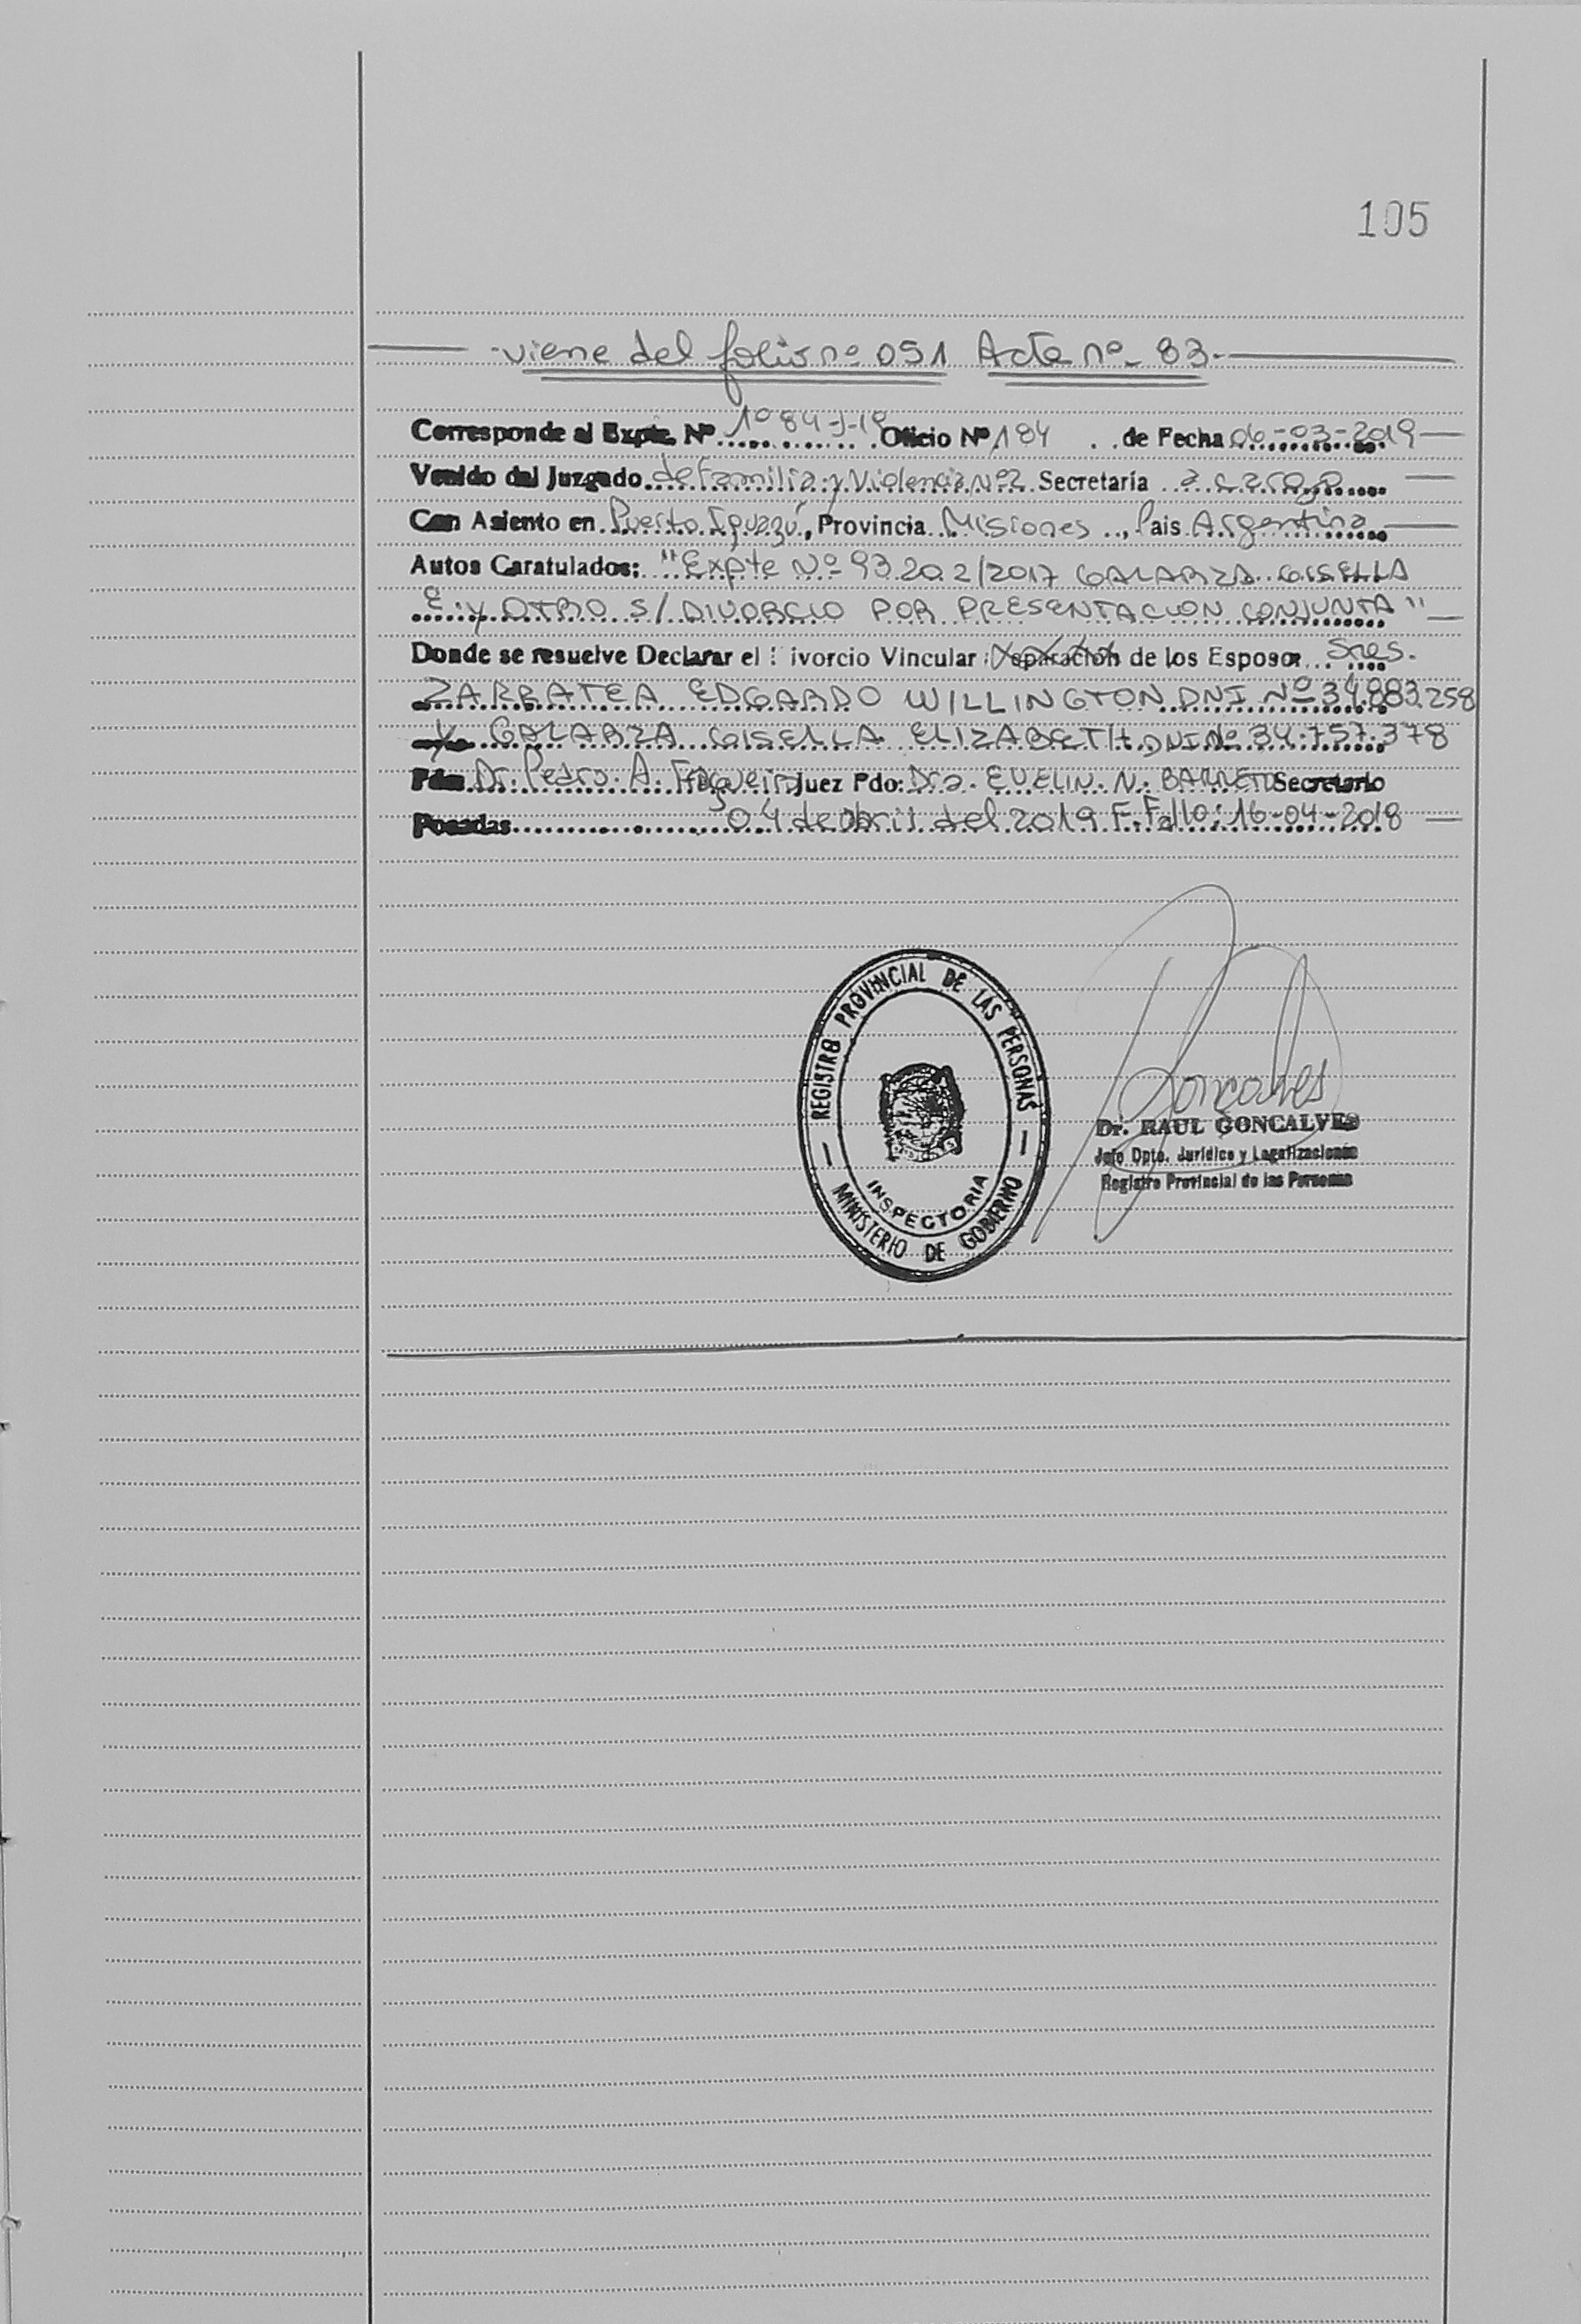 105
viene del folio nº 051 Acta nº 83
Corresponde al Expte. Nº 1084-J-19 Oficio Nº 184 de Fecha 06-03-2019
Venido del Juzgado de Familia y Violencia Nº2 Secretaría a cargo
Con Asiento en Puerto Iguazú, Provincia Misiones, Pais Argentina
Autos Caratulados: "Expte Nº 93202/2017 GALARZA GISELLA
E. y OTRO S/ DIVORCIO POR PRESENTACION CONJUNTA"
Donde se resuelve Declarar el ivorcio Vincular Separación de los Esposos Sres.
ZARRATEA EDGARDO WILLINGTON DNI Nº 34.883.258
y GALARZA GISELLA ELIZABETH DNI Nº 34.757.378
Fdo Dr. Pedro A. Juez Fdo: Dra. EVELIN N. BARRETO Secretario
Posadas 04 de abril del 2019 F. Fallo: 16-04-2018
REGISTRO PROVINCIAL DE LAS PERSONAS
INSPECTORIA
MINISTERIO DE GOBIERNO
Goncalves
Dr. RAUL GONCALVES
Jefe Dpto. Jurídico y Legalizaciones
Registro Provincial de las Personas